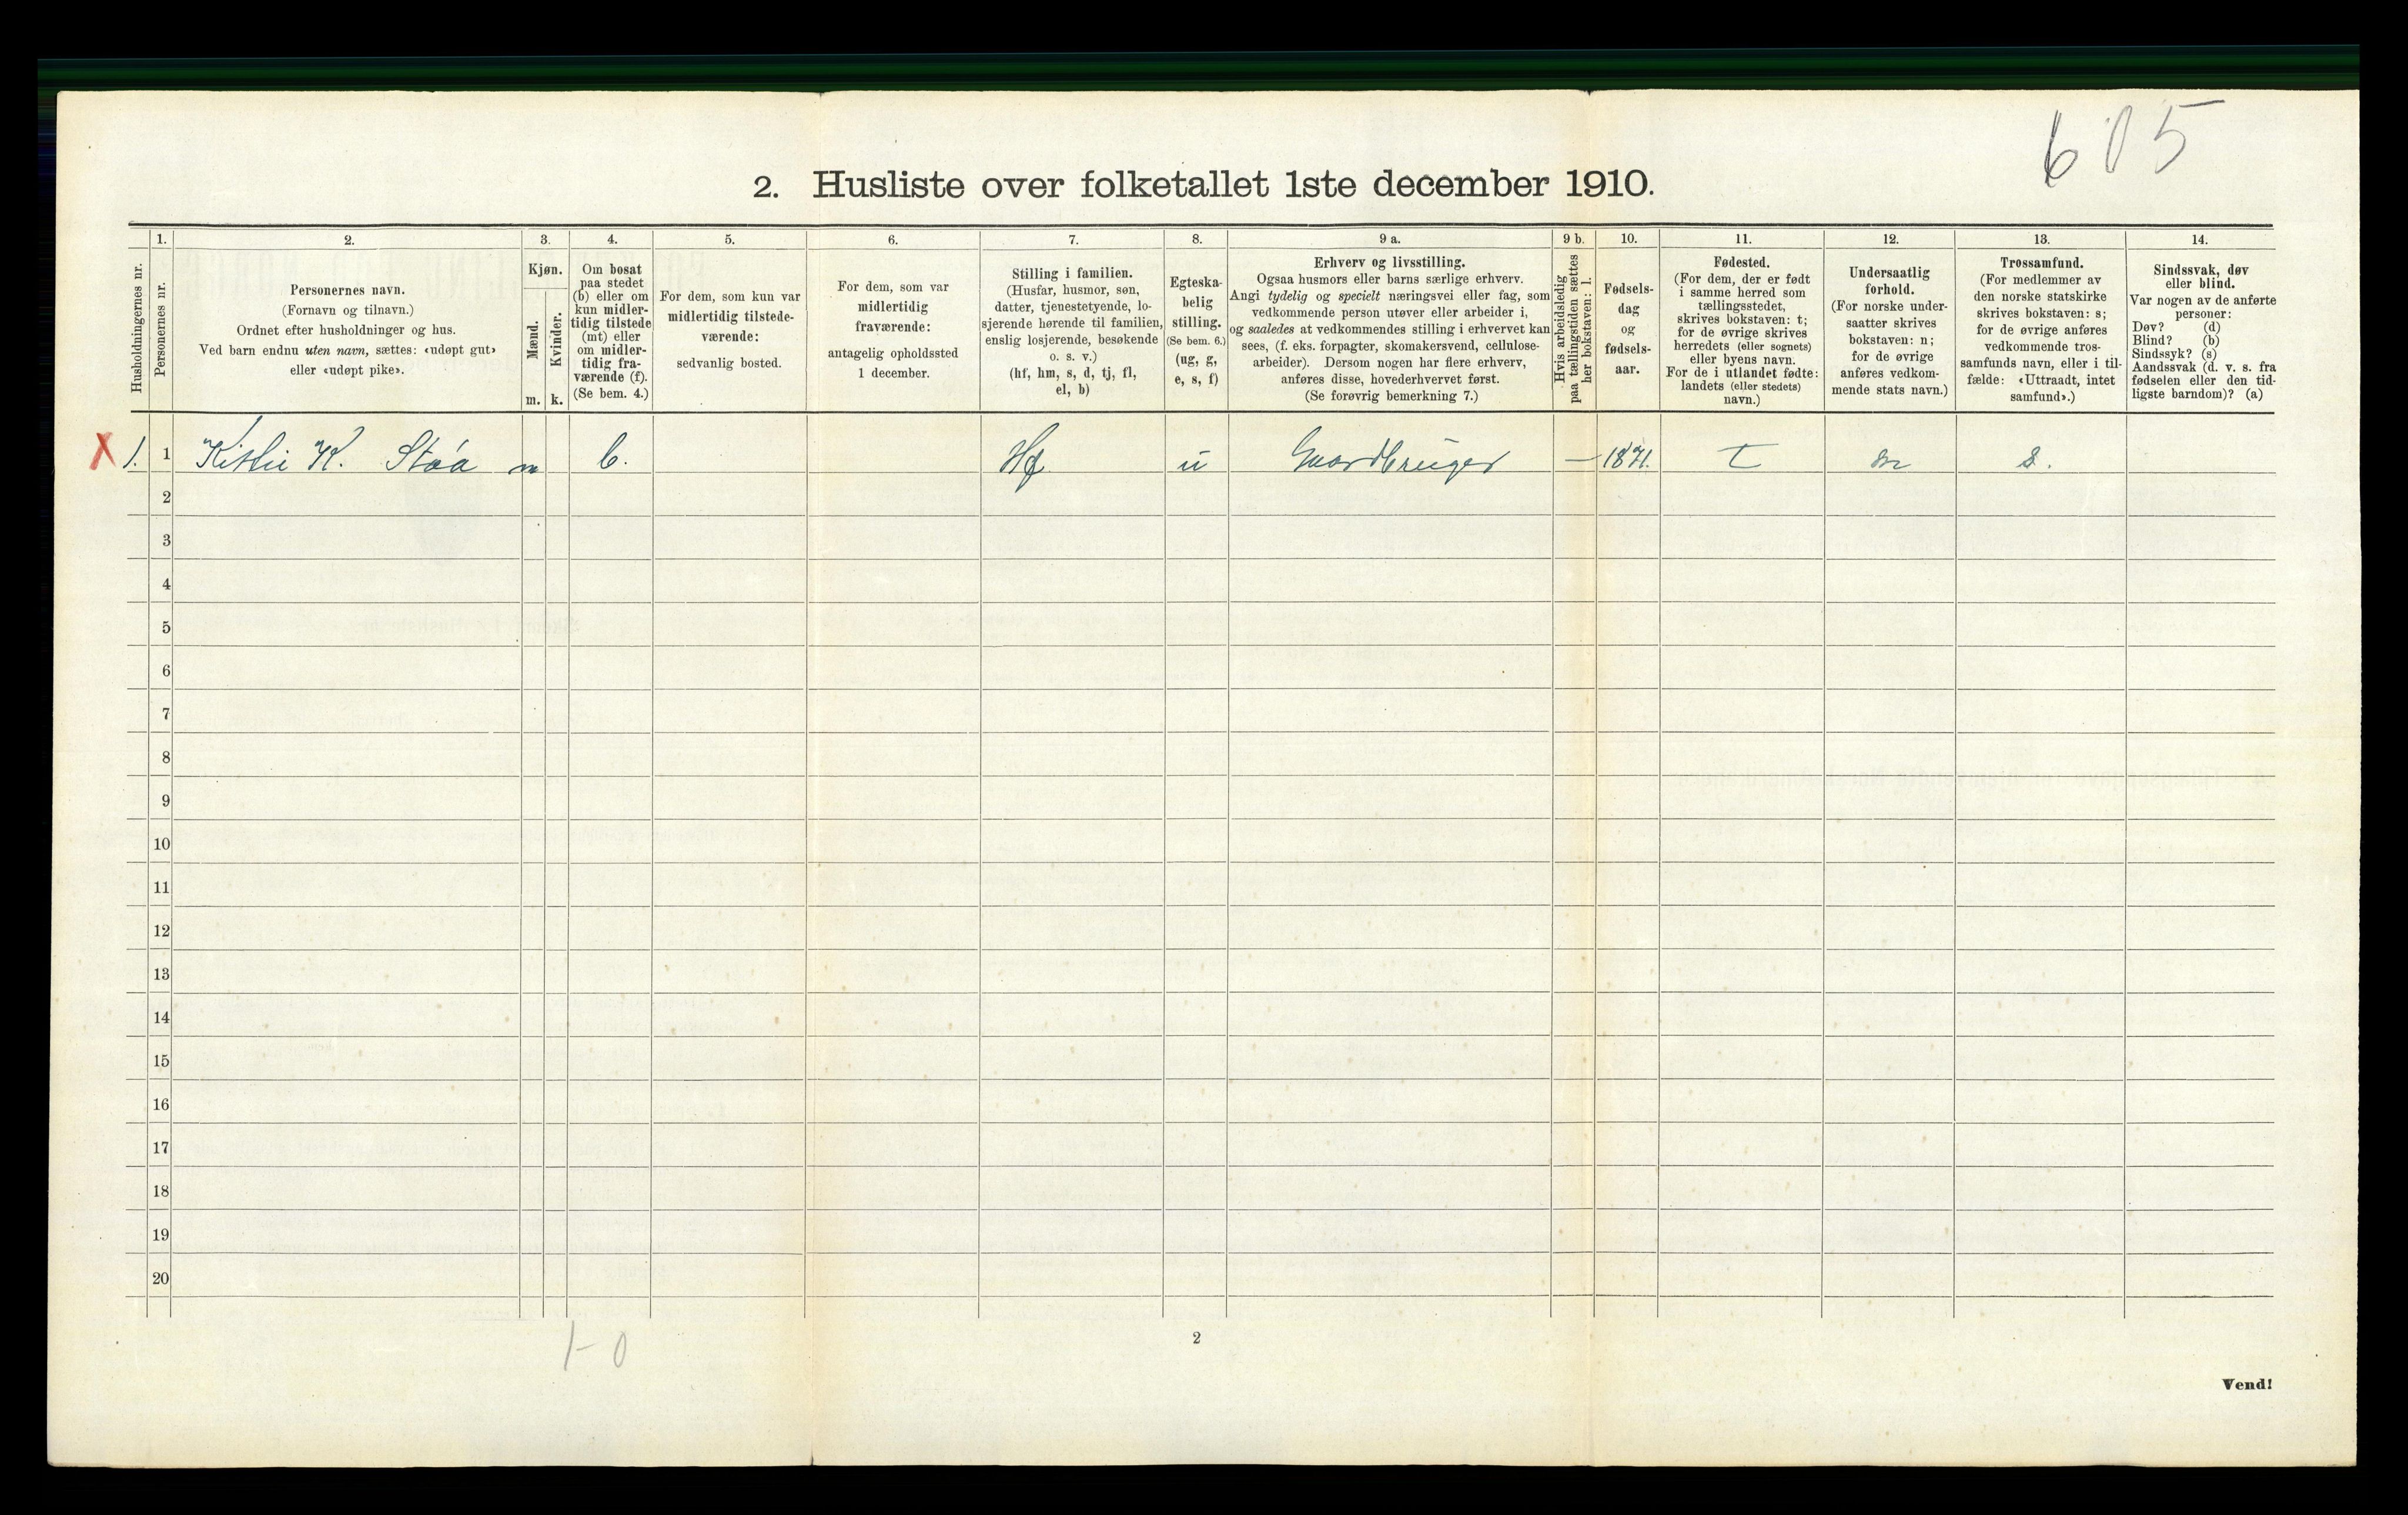 605
2. Husliste over folketallet 1ste december 1910.
Husholdningernes nr.
1.
Personernes nr.
2.
Personernes navn.
(Fornavn og tilnavn.)
Ordnet efter husholdninger og hus.
Ved barn endnu uten navn, sættes: «udøpt gut»
eller «udøpt pike».
3.
Kjøn.
Mænd.
Kvinder.
m. k.
4.
Om bosat
paa stedet
(b) eller om
kun midler-
tidig tilstede
(mt) eller
om midler-
tidig fra-
værende (f).
(Se bem. 4.)
5.
For dem, som kun var
midlertidig tilstede-
værende:
sedvanlig bosted.
6.
For dem, som var
midlertidig
fraværende:
antagelig opholdssted
1 december.
7.
Stilling i familien.
(Husfar, husmor, søn,
datter, tjenestetyende, lo-
sjerende hørende til familien,
enslig losjerende, besøkende
o. s. v.)
(hf, hm, s, d, tj, fl,
el, b)
8.
Egteska-
belig
stilling.
(Se bem. 6.)
(ug, g,
e, s, f)
9 a.
Erhverv og livsstilling.
Ogsaa husmors eller barns særlige erhverv.
Angi tydelig og specielt næringsvei eller fag, som
vedkommende person utøver eller arbeider i,
og saaledes at vedkommendes stilling i erhvervet kan
sees, (f. eks. forpagter, skomakersvend, cellulose-
arbeider). Dersom nogen har flere erhverv,
anføres disse, hovederhvervet først.
(Se forøvrig bemerkning 7.)
9 b.
Hvis arbeidsledig
paa tællingstiden sættes
her bokstaven: l.
10.
Fødsels-
dag
og
fødsels-
aar.
11.
Fødested.
(For dem, der er født
i samme herred som
tællingsstedet,
skrives bokstaven: t;
for de øvrige skrives
herredets (eller sognets)
eller byens navn.
For de i utlandet fødte:
landets (eller stedets)
navn.)
12.
Undersaatlig
forhold.
(For norske under-
saatter skrives
bokstaven: n;
for de øvrige
anføres vedkom-
mende stats navn.)
13.
Trossamfund.
(For medlemmer av
den norske statskirke
skrives bokstaven: s;
for de øvrige anføres
vedkommende tros-
samfunds navn, eller i til-
fælde: «Uttraadt, intet
samfund».)
14.
Sindssvak, døv
eller blind.
Var nogen av de anførte
personer:
Døv? (d)
Blind? (b)
Sindssyk? (s)
Aandssvak (d. v. s. fra
fødselen eller den tid-
ligste barndom)? (a)
X 1. 1 K. Støa m b. Hf u Gaardbruger – 1871. t n s.
2
3
4
5
6
7
8
9
10
11
12
13
14
15
16
17
18
19
20
1-0
2
Vend!